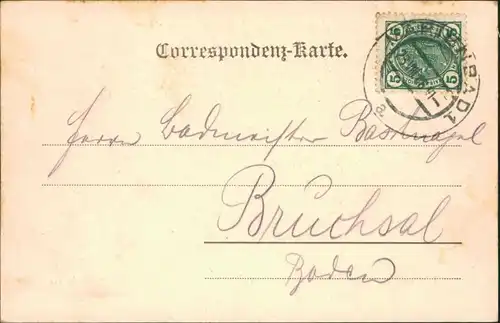 5 5
Correspondenz-Karte.
5 5
Herrn Bademeister Bastnagel
Bruchsal
Baden